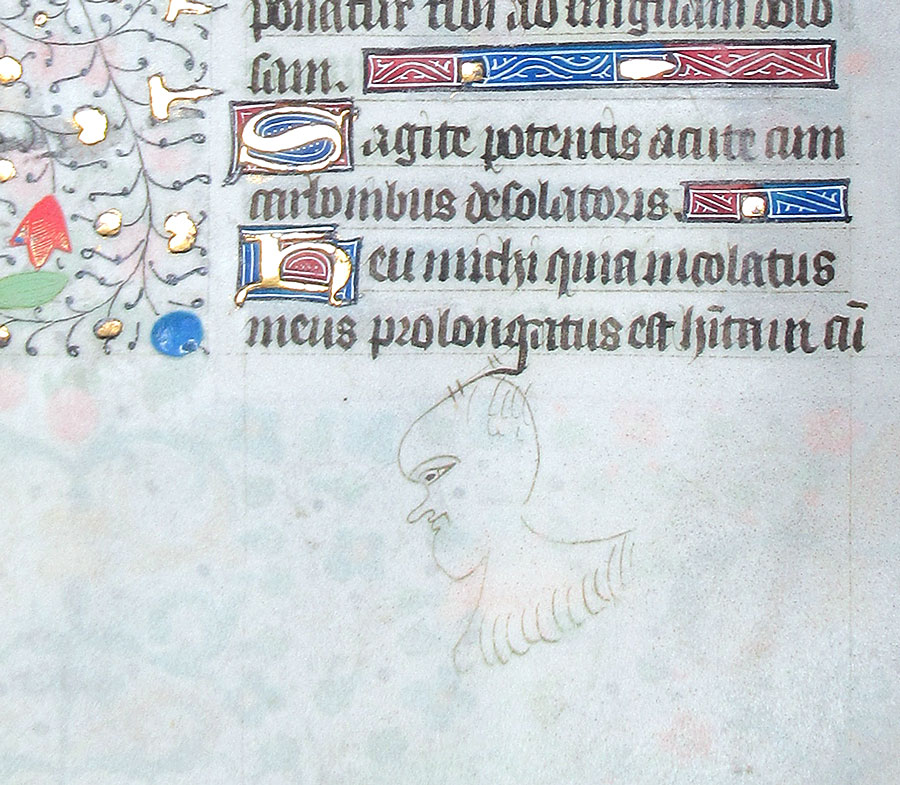 ponatur tibi ad linguam dolo
sam.
Sagite potentis acute cum
carbonibus desolatoris.
Heu michi quia incolatus
meus prolongatus est hītaui cū